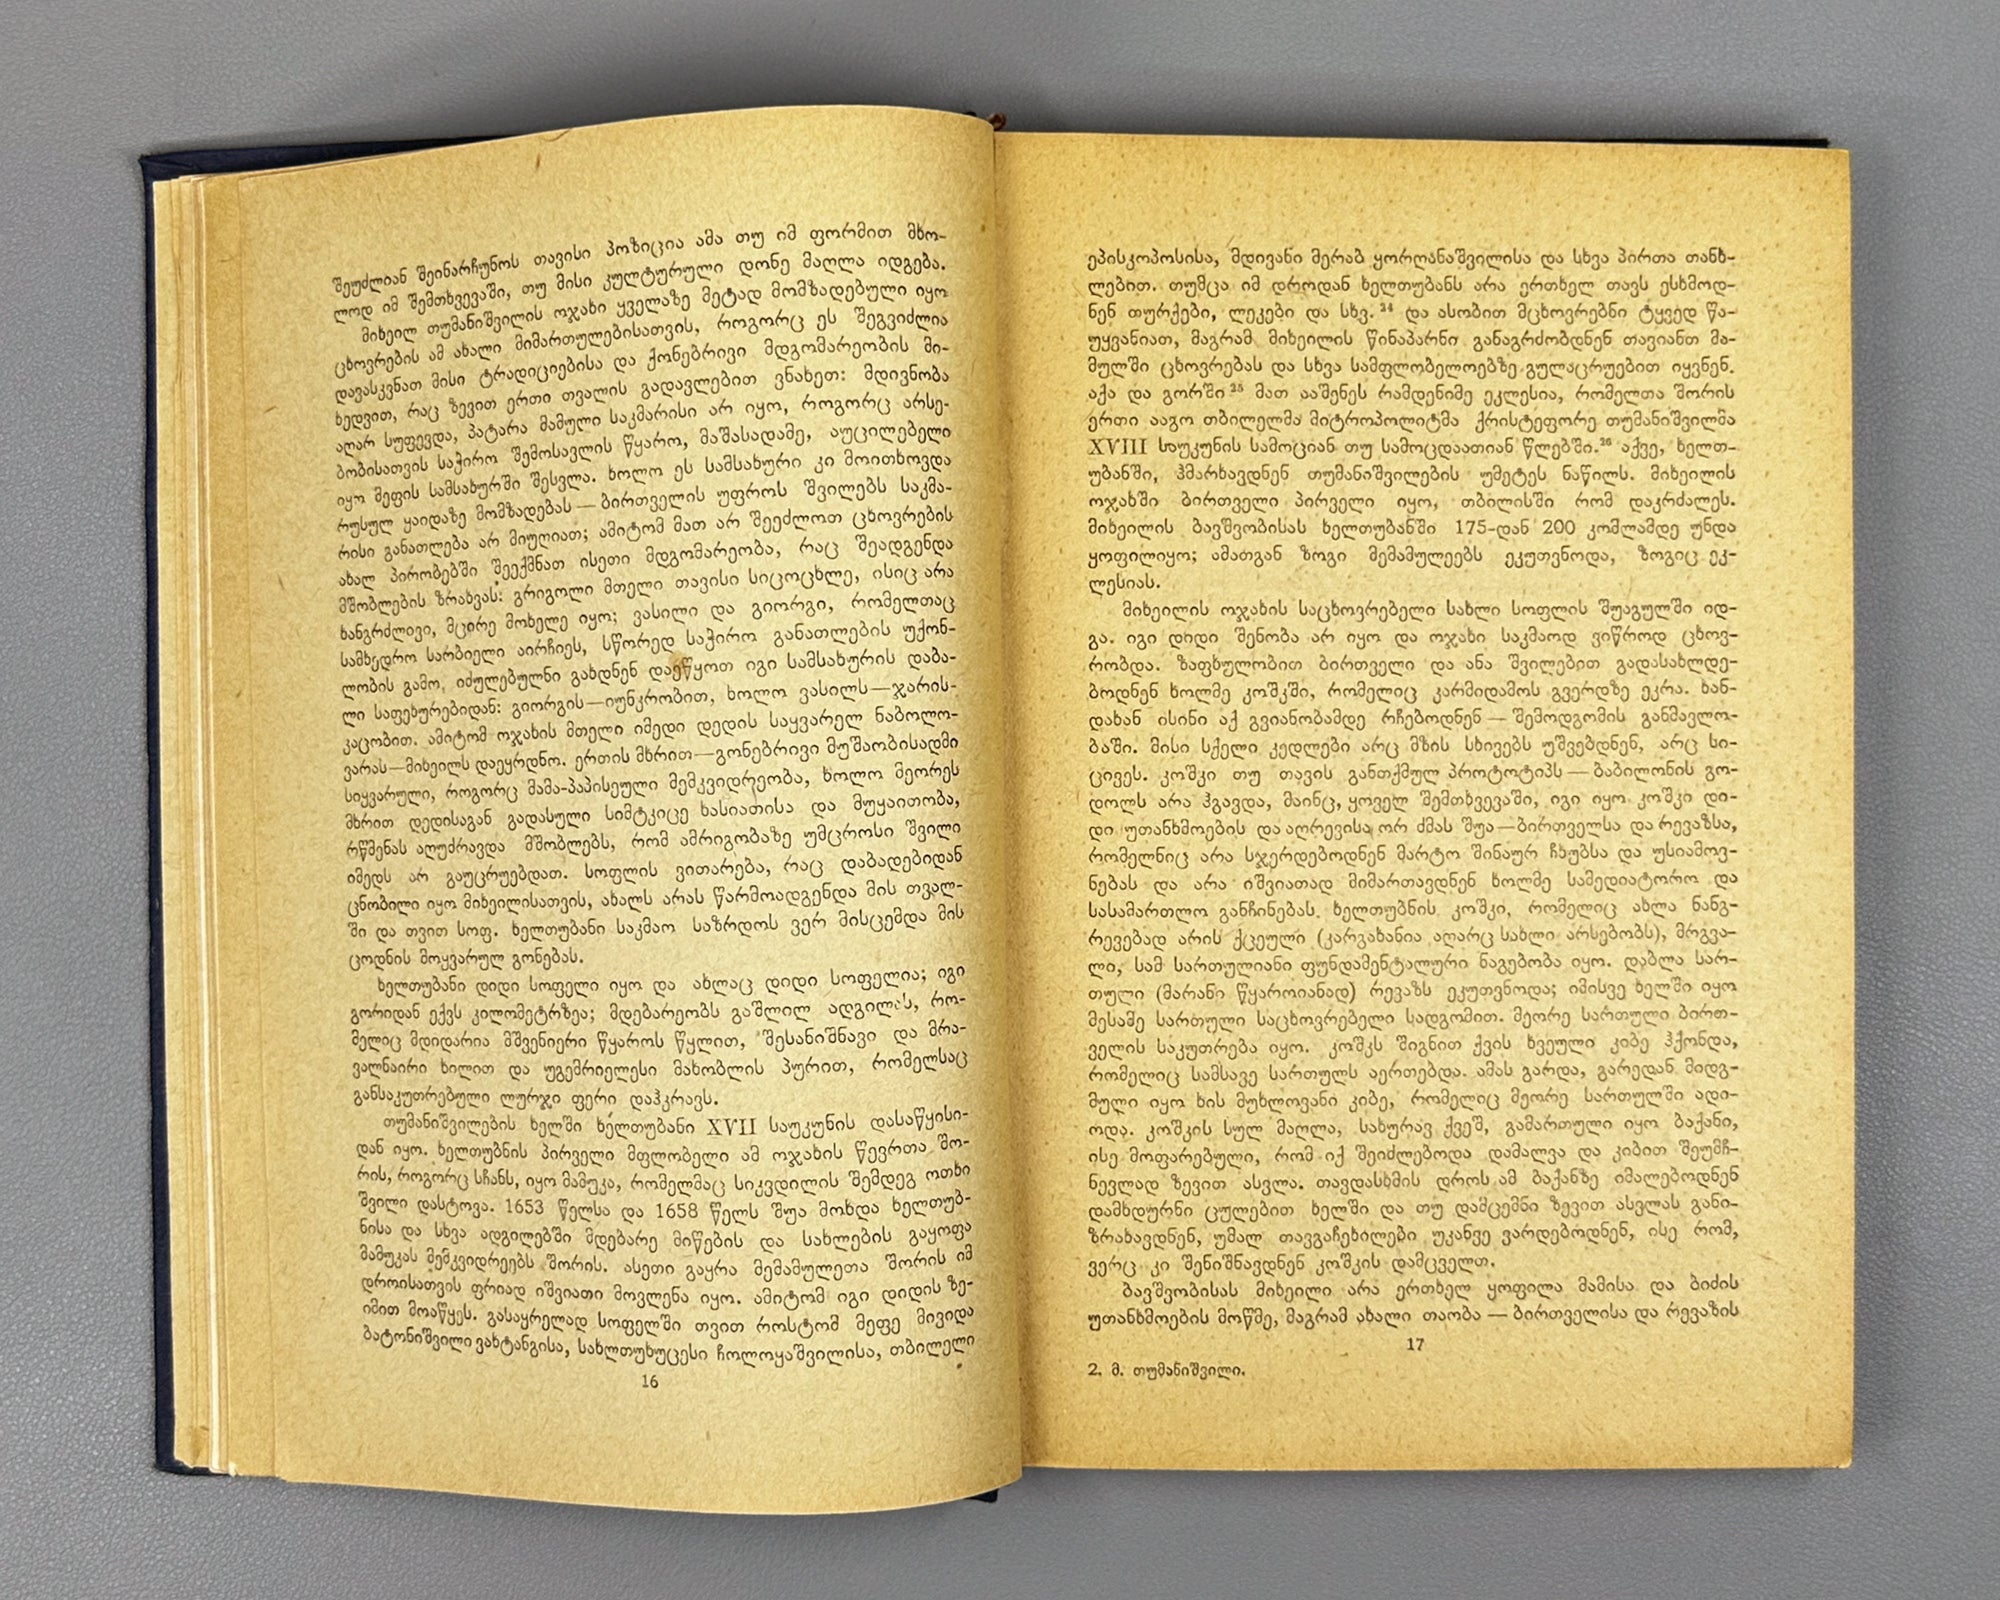 შეუძლიან შეინარჩუნოს თავისი პოზიცია ამა თუ იმ ფორმით მხო-
ლოდ იმ შემთხვევაში, თუ მისი კულტურული დონე მაღლა იდგება.
მიხეილ თუმანიშვილის ოჯახი ყველაზე მეტად მომზადებული იყო
ცხოვრების ამ ახალი მიმართულებისათვის, როგორც ეს შეგვიძლია
დავასკვნათ მისი ტრადიციებისა და ქონებრივი მდგომარეობის მი-
ხედვით, რაც ზევით ერთი თვალის გადავლებით ვნახეთ: მდივნობა
აღარ სუფევდა, პატარა მამული საკმარისი არ იყო, როგორც არსე-
ბობისათვის საჭირო შემოსავლის წყარო, მაშასადამე, აუცილებელი
იყო მეფის სამსახურში შესვლა. ხოლო ეს სამსახური კი მოითხოვდა
რუსულ ყაიდაზე მომზადებას — ბირთველის უფროს შვილებს საკმა-
რისი განათლება არ მიუღიათ; ამიტომ მათ არ შეეძლოთ ცხოვრების
ახალ პირობებში შეექმნათ ისეთი მდგომარეობა, რაც შეადგენდა
მშობლების ზრახვას: გრიგოლი მთელი თავისი სიცოცხლე, ისიც არა
ხანგრძლივი, მცირე მოხელე იყო; ვასილი და გიორგი, რომელთაც
სამხედრო სარბიელი აირჩიეს, სწორედ საჭირო განათლების უქონ-
ლობის გამო, იძულებულნი გახდნენ დაეწყოთ იგი სამსახურის დაბა-
ლი საფეხურებიდან: გიორგის—იუნკრობით, ხოლო ვასილს—ჯარის-
კაცობით. ამიტომ ოჯახის მთელი იმედი დედის საყვარელ ნაბოლო-
ვარას—მიხეილს დაეყრდნო. ერთის მხრით—გონებრივი მუშაობისადმი
სიყვარული, როგორც მამა-პაპისეული მემკვიდრეობა, ხოლო მეორეს
მხრით დედისაგან გადასული სიმტკიცე ხასიათისა და მუყაითობა,
რწმენას აღუძრავდა მშობლებს, რომ ამრიგობაზე უმცროსი შვილი
იმედს არ გაუცრუებდათ. სოფლის ვითარება, რაც დაბადებიდან
ცნობილი იყო მიხეილისათვის, ახალს არას წარმოადგენდა მის თვალ-
ში და თვით სოფ. ხელთუბანი საკმაო საზრდოს ვერ მისცემდა მის
ცოდნის მოყვარულ გონებას.
ხელთუბანი დიდი სოფელი იყო და ახლაც დიდი სოფელია; იგი
გორიდან ექვს კილომეტრზეა; მდებარეობს გაშლილ ადგილას, რო-
მელიც მდიდარია მშვენიერი წყაროს წყლით, შესანიშნავი და მრა-
ვალნაირი ხილით და უგემრიელესი მახობლის პურით, რომელსაც
განსაკუთრებული ლურჯი ფერი დაჰკრავს.
თუმანიშვილების ხელში ხელთუბანი XVII საუკუნის დასაწყისი-
დან იყო. ხელთუბნის პირველი მფლობელი ამ ოჯახის წევრთა შო-
რის, როგორც სჩანს, იყო მამუკა, რომელმაც სიკვდილის შემდეგ ოთხი
შვილი დასტოვა. 1653 წელსა და 1658 წელს შუა მოხდა ხელთუბ-
ნისა და სხვა ადგილებში მდებარე მიწების და სახლების გაყოფა
მამუკას მემკვიდრეებს შორის. ასეთი გაყრა მემამულეთა შორის იმ
დროისათვის ფრიად იშვიათი მოვლენა იყო. ამიტომ იგი დიდის ზე-
იმით მოაწყეს. გასაყრელად სოფელში თვით როსტომ მეფე მივიდა
ბატონიშვილი ვახტანგისა, სახლთუხუცესი ჩოლოყაშვილისა, თბილელი
16
ეპისკოპოსისა, მდივანი მერაბ ყორღანაშვილისა და სხვა პირთა თანხ-
ლებით. თუმცა იმ დროდან ხელთუბანს არა ერთხელ თავს ესხმოდ-
ნენ თურქები, ლეკები და სხვ.²⁴ და ასობით მცხოვრებნი ტყვედ წა-
უყვანიათ, მაგრამ მიხეილის წინაპარნი განაგრძობდნენ თავიანთ მა-
მულში ცხოვრებას და სხვა სამფლობელოებზე გულაცრუებით იყვნენ.
აქა და გორში²⁵ მათ ააშენეს რამდენიმე ეკლესია, რომელთა შორის
ერთი ააგო თბილელმა მიტროპოლიტმა ქრისტეფორე თუმანიშვილმა
XVIII საუკუნის სამოციან თუ სამოცდაათიან წლებში.²⁶ აქვე, ხელთ-
უბანში, ჰმარხავდნენ თუმანიშვილების უმეტეს ნაწილს. მიხეილის
ოჯახში ბირთველი პირველი იყო, თბილისში რომ დაკრძალეს.
მიხეილის ბავშვობისას ხელთუბანში 175-დან 200 კომლამდე უნდა
ყოფილიყო; ამათგან ზოგი მემამულეებს ეკუთვნოდა, ზოგიც ეკ-
ლესიას.
მიხეილის ოჯახის საცხოვრებელი სახლი სოფლის შუაგულში იდ-
გა. იგი დიდი შენობა არ იყო და ოჯახი საკმაოდ ვიწროდ ცხოვ-
რობდა. ზაფხულობით ბირთველი და ანა შვილებით გადასახლდე-
ბოდნენ ხოლმე კოშკში, რომელიც კარმიდამოს გვერდზე ეკრა. ხან-
დახან ისინი აქ გვიანობამდე რჩებოდნენ — შემოდგომის განმავლო-
ბაში. მისი სქელი კედლები არც მზის სხივებს უშვებდნენ, არც სი-
ცივეს. კოშკი თუ თავის განთქმულ პროტოტიპს — ბაბილონის გო-
დოლს არა ჰგავდა, მაინც, ყოველ შემთხვევაში, იგი იყო კოშკი დი-
დი უთანხმოების და აღრევისა ორ ძმას შუა—ბირთველსა და რევაზსა,
რომელნიც არა სჯერდებოდნენ მარტო შინაურ ჩხუბსა და უსიამოვ-
ნებას და არა იშვიათად მიმართავდნენ ხოლმე სამედიატორო და
სასამართლო განჩინებას. ხელთუბნის კოშკი, რომელიც ახლა ნანგ-
რევებად არის ქცეული (კარგახანია აღარც სახლი არსებობს), მრგვა-
ლი, სამ სართულიანი ფუნდამენტალური ნაგებობა იყო. დაბლა სარ-
თული (მარანი წყაროიანად) რევაზს ეკუთვნოდა; იმისვე ხელში იყო
მესამე სართული საცხოვრებელი სადგომით. მეორე სართული ბირთ-
ველის საკუთრება იყო. კოშკს შიგნით ქვის ხვეული კიბე ჰქონდა,
რომელიც სამსავე სართულს აერთებდა. ამას გარდა, გარედან მიდგ-
მული იყო ხის მუხლოვანი კიბე, რომელიც მეორე სართულში ადი-
ოდა. კოშკის სულ მაღლა, სახურავ ქვეშ, გამართული იყო ბაქანი,
ისე მოფარებული, რომ იქ შეიძლებოდა დამალვა და კიბით შეუმჩ-
ნევლად ზევით ასვლა. თავდასხმის დროს ამ ბაქანზე იმალებოდნენ
დამხდურნი ცულებით ხელში და თუ დამცემნი ზევით ასვლას განი-
ზრახავდნენ, უმალ თავგაჩეხილები უკანვე ვარდებოდნენ, ისე რომ,
ვერც კი შენიშნავდნენ კოშკის დამცველთ.
ბავშვობისას მიხეილი არა ერთხელ ყოფილა მამისა და ბიძის
უთანხმოების მოწმე, მაგრამ ახალი თაობა — ბირთველისა და რევაზის
17
2. მ. თუმანიშვილი.